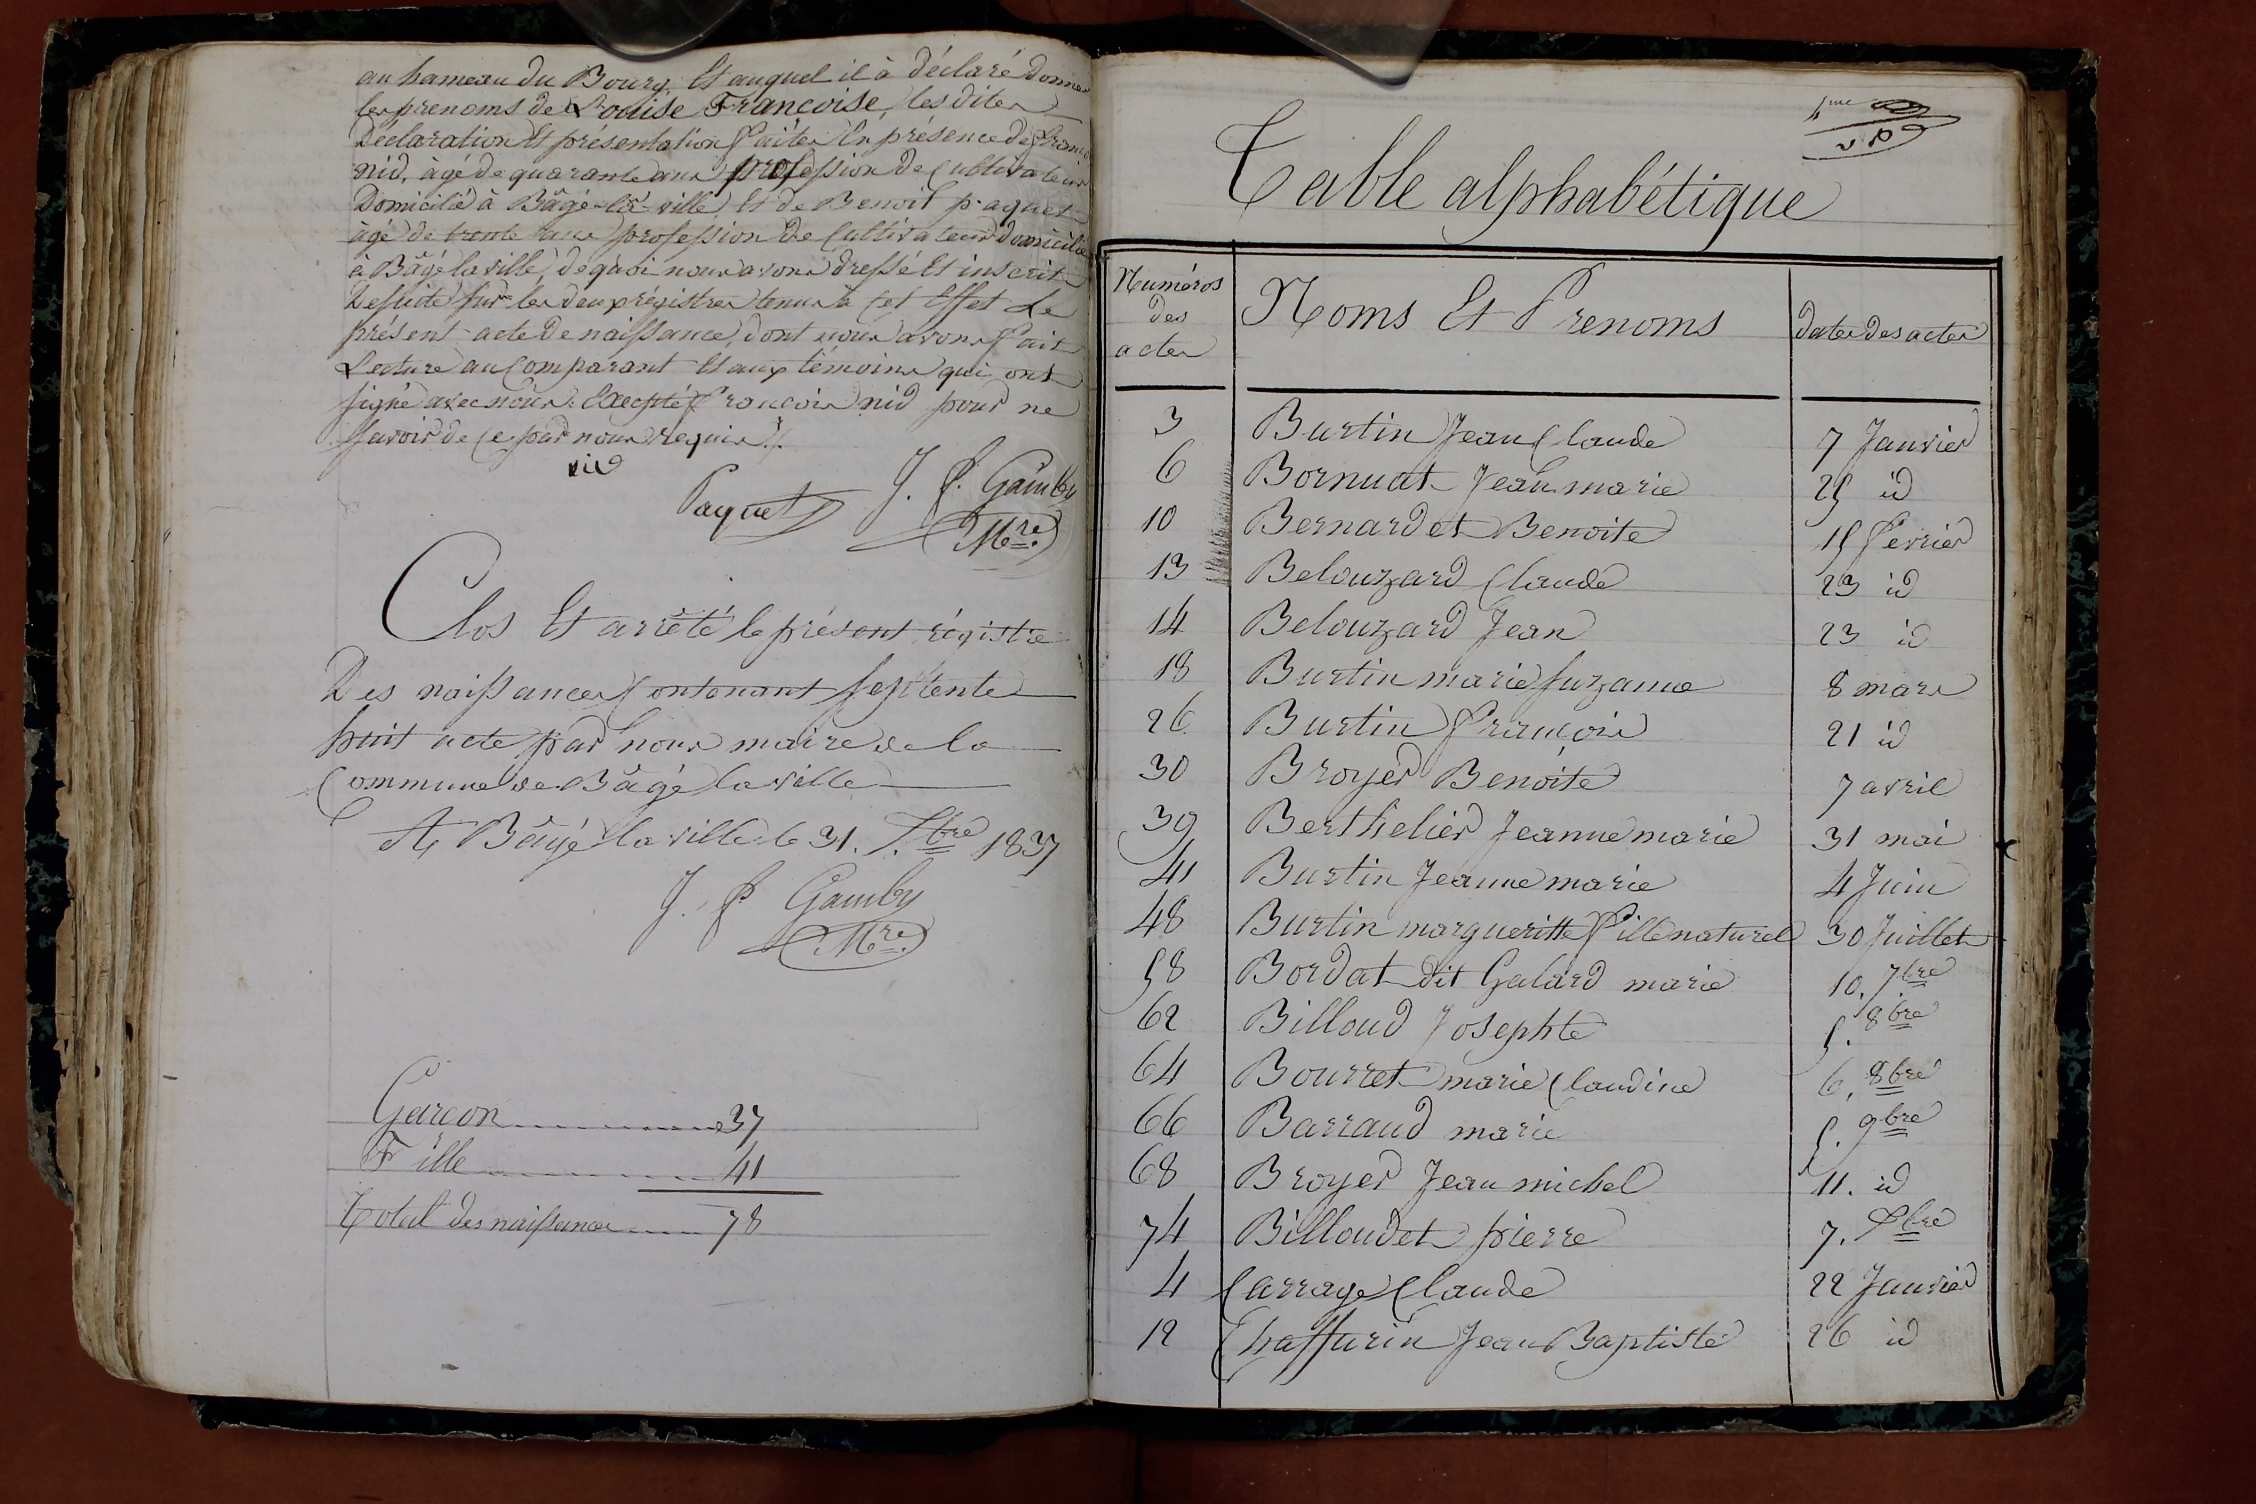 au hameau du Bourg, Et auquel il à déclaré donner
les prenoms de Louise Françoise, les dites
Déclaration Et présentation faites En présence de François
nid, âgé de quarante ans profession de Cultivateur
Domicilié à Bâgé-la-ville, Et de Benoit paquet
âgé de trente ans profession de Cultivateur domicilié
à Bâgé la ville, de quoi nous avons dressé Et inscrit
De suite sur les deux régistres tenus à Cet Effet Le
présent acte De naissance, dont nous avons fait
Lecture au Comparant Et aux témoins qui ont
signé avec nous. Excepté François nid pour ne
savoir de Ce par nous requis ./.
nid
Paquet J. P. Gamby
Mre.
Clos Et arrêté le présent régistre
Des naissances Contenant septente
huit acte par nous maire de la
Commune de Bâgé la ville
A Bâgé la ville le 31. Xbre 1837
J. P Gamby
Mre.
Garcon 37
Fille 41
Total des naissances 78
Table alphabétique
Numéros des actes Noms Et Prenoms dates des actes
3 Burtin Jean Claude 7 Janvier
6 Bornuat Jean marie 25 id
10 Bernardet Benoite 15 fevrier
13 Belouzard Claude 23 id
14 Belouzard Jean 23 id
18 Burtin marie suzanne 8 mars
26 Burtin François 21 id
30 Broyer Benoite 7 avril
39 Berthelier Jeanne marie 31 mai
41 Burtin Jeanne marie 4 Juin
48 Burtin margueritte fille naturel 30 Juillet
58 Bordat dit Galard marie 10. 7bre
62 Billoud Josephte 5. 8bre
64 Bourret marie Claudine 6. 8bre
66 Barraud marie 5. 9bre
68 Broyer Jean michel 11. id
74 Billoudet pierre 7. Xbre
4 Carrage Claude 22 Janvier
12 Chaffurin Jean Baptiste 26 id